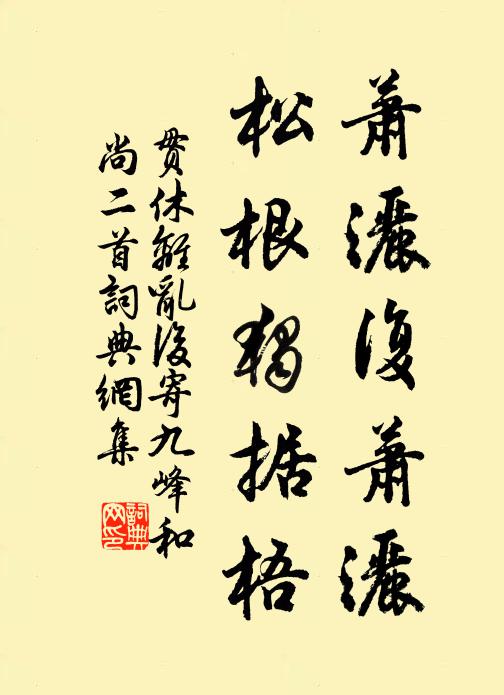 蕭灑復蕭灑
松根獨据梧
貫休離亂後寄九峰和
尚二首詞典網集
詞典網印